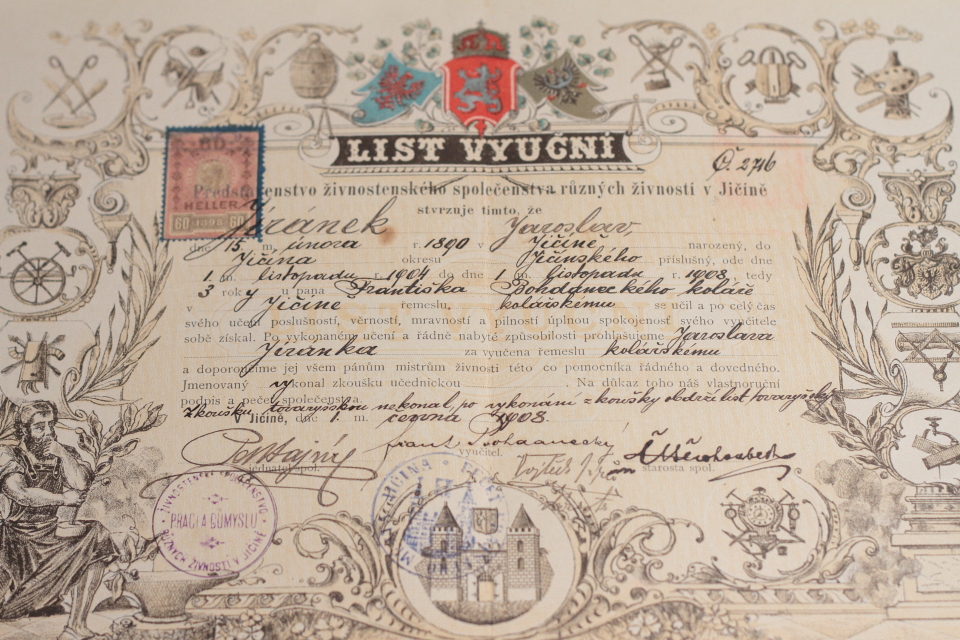 LIST VYUČNÍ
Č. 2746
60
HELLER
60 1898 60
Představenstvo živnostenského společenstva různých živností v Jičíně
stvrzuje tímto, že
Jiránek Jaroslav,
dne 15. m. února r. 1890 v Jičíně, narozený, do
Jičína okresu Jičínského příslušný, ode dne
1. m. listopadu r. 1904 do dne 1. m. listopadu r. 1908, tedy
3 roky u pana Františka Bohdaneckého kolář
v Jičíně řemeslu kolářskému se učil a po celý čas
svého učení poslušností, věrností, mravností a pilností úplnou spokojenost svého vyučitele
sobě získal. Po vykonaném učení a řádně nabyté způsobilosti prohlašujeme Jaroslava
Jiránka za vyučena řemeslu kolářskému
a doporoučíme jej všem pánům mistrům živnosti této co pomocníka řádného a dovedného.
Jmenovaný vykonal zkoušku učednickou . Na důkaz toho náš vlastnoruční
podpis a pečeť společenstva.
Zkoušku tovaryšskou nekonal, po vykonání zkoušky obdrží list tovaryšský.
V Jičíně, dne 1. m. června 1908.
Frant. Bohdanecký
jednatel spol. vyučitel. starosta spol.
PRÁCI A PRŮMYSLU
RŮZNÝCH ŽIVNOSTÍ V JIČÍNĚ